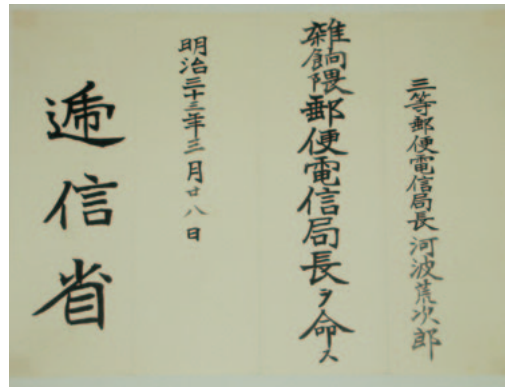 三等郵便電信局長河波荒次郎
雑餉隈郵便電信局長ヲ命ス
明治三十三年三月廿八日
逓信省